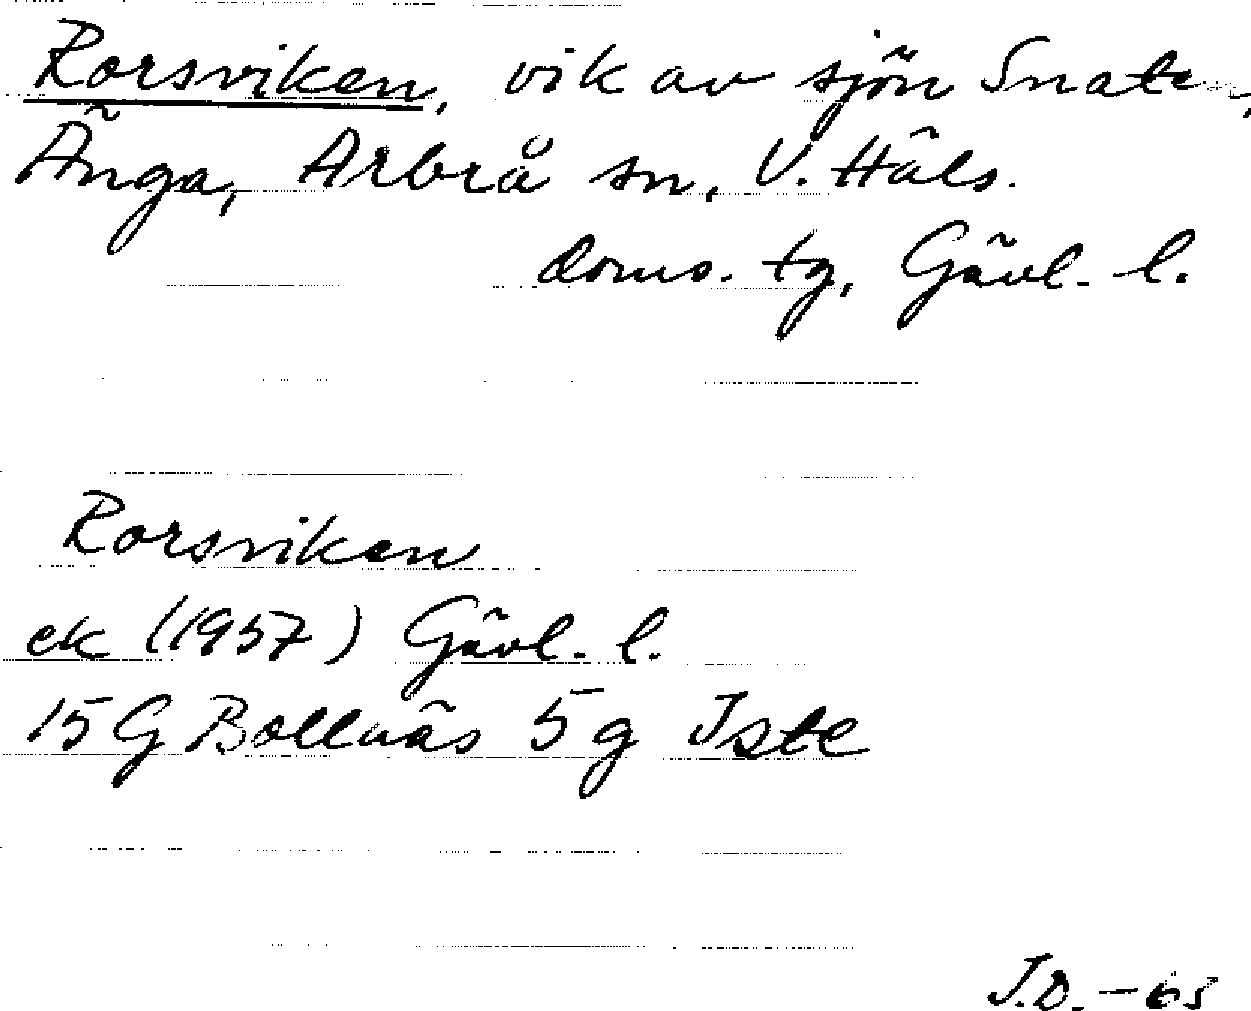 Rorsviken, vik av sjön Snaten,
Änga, Arbrå sn, V. Häls.
doms. tg, Gävl. l.
Rorsviken
ek (1957) Gävl. l.
15 G Bollnäs 5 g Iste
J.D. - 65